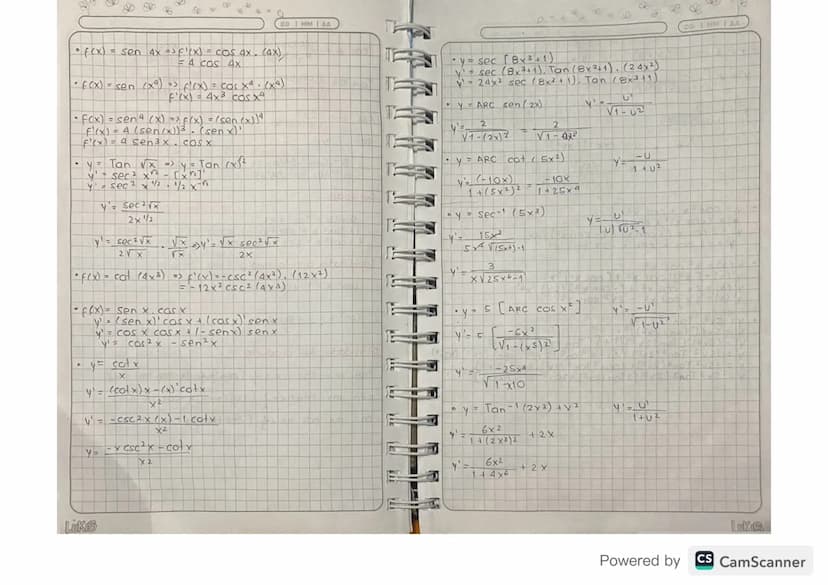 DD | MM | AA
• f(x) = sen 4x => f'(x) = cos 4x . (4x)
= 4 cos 4x
• f(x) = sen (x⁴) => f'(x) = cos x⁴ . (x⁴)
f'(x) = 4x³ cos x⁴
• f(x) = sen⁴ (x) => f(x) = (sen (x))⁴
f'(x) = 4 (sen(x))³ . (sen x)'
f'(x) = 4 sen³x . cos x
• y = Tan √x => y = Tan (x)½
y' = sec² x½ - [x½]'
y' = sec² x^1/2 + 1/2 x^-½
y' = sec²√x / 2x^1/2
y' = sec²√x / 2√x . √x / √x => y' = √x sec²√x / 2x
• f(x) = cot (4x³) => f'(x) = -csc² (4x³) . (12x²)
= -12x² csc² (4x³)
• f(x) = sen x . cos x
y' = (sen x)' cos x + (cos x)' sen x
y' = cos x cos x + (-sen x) sen x
y' = cos² x - sen² x
• y = cot x / x
y' = (cot x) x - (x)' cot x / x²
y' = -csc² x (x) - 1 cot x / x²
y = -x csc² x - cot x / x²
DD | MM | AA
• y = sec [8x³+1)
y' = sec (8x³+1) . Tan (8x³+1) . (24x²)
y' = 24x² sec (8x³+1) . Tan (8x³+1)
• y = ARC sen (2x) y' = u' / √1-u²
y' = 2 / √1-(2x)² = 2 / √1-4x²
• y = ARC cot (5x²) y = -u / 1+u²
y' = (-10x) / 1+(5x²)² = -10x / 1+25x⁴
• y = sec⁻¹ (5x³) y = u' / |u| √u²-1
y' = 15x²
y' = 3
• y = 5 [ARC cos x⁵] y' = -u' / √1-u²
y' = 5
y' = -25x⁴ / √1-x10
• y = Tan⁻¹ (2x³) + x² y' = u' / 1+u²
y' = 6x² / 1+(2x³)² + 2x
y' = 6x² / 1+4x⁶ + 2x
Powered by CS CamScanner